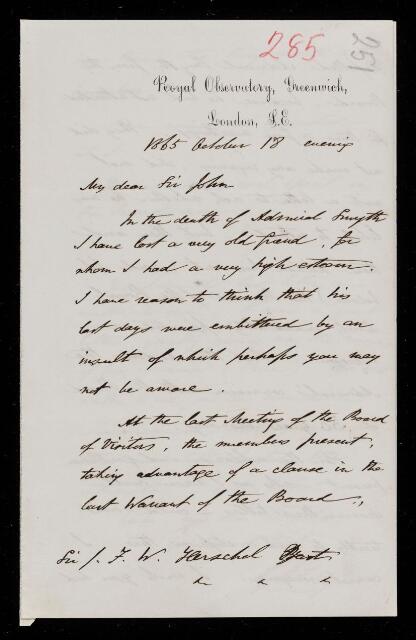 285
251
Royal Observatory, Greenwich,
London, S.E.
1865 October 18 evening
My dear Sir John
In the death of Admiral Smyth
I have lost a very old friend, for
whom I had a very high esteem.
I have reason to think that his
last days were embittered by an
insult of which perhaps you may
not be aware.
At the last Meeting of the Board
of Visitors, the members present,
taking advantage of a clause in the
last Warrant of the Board,
Sir J. F. W. Herschel Bart